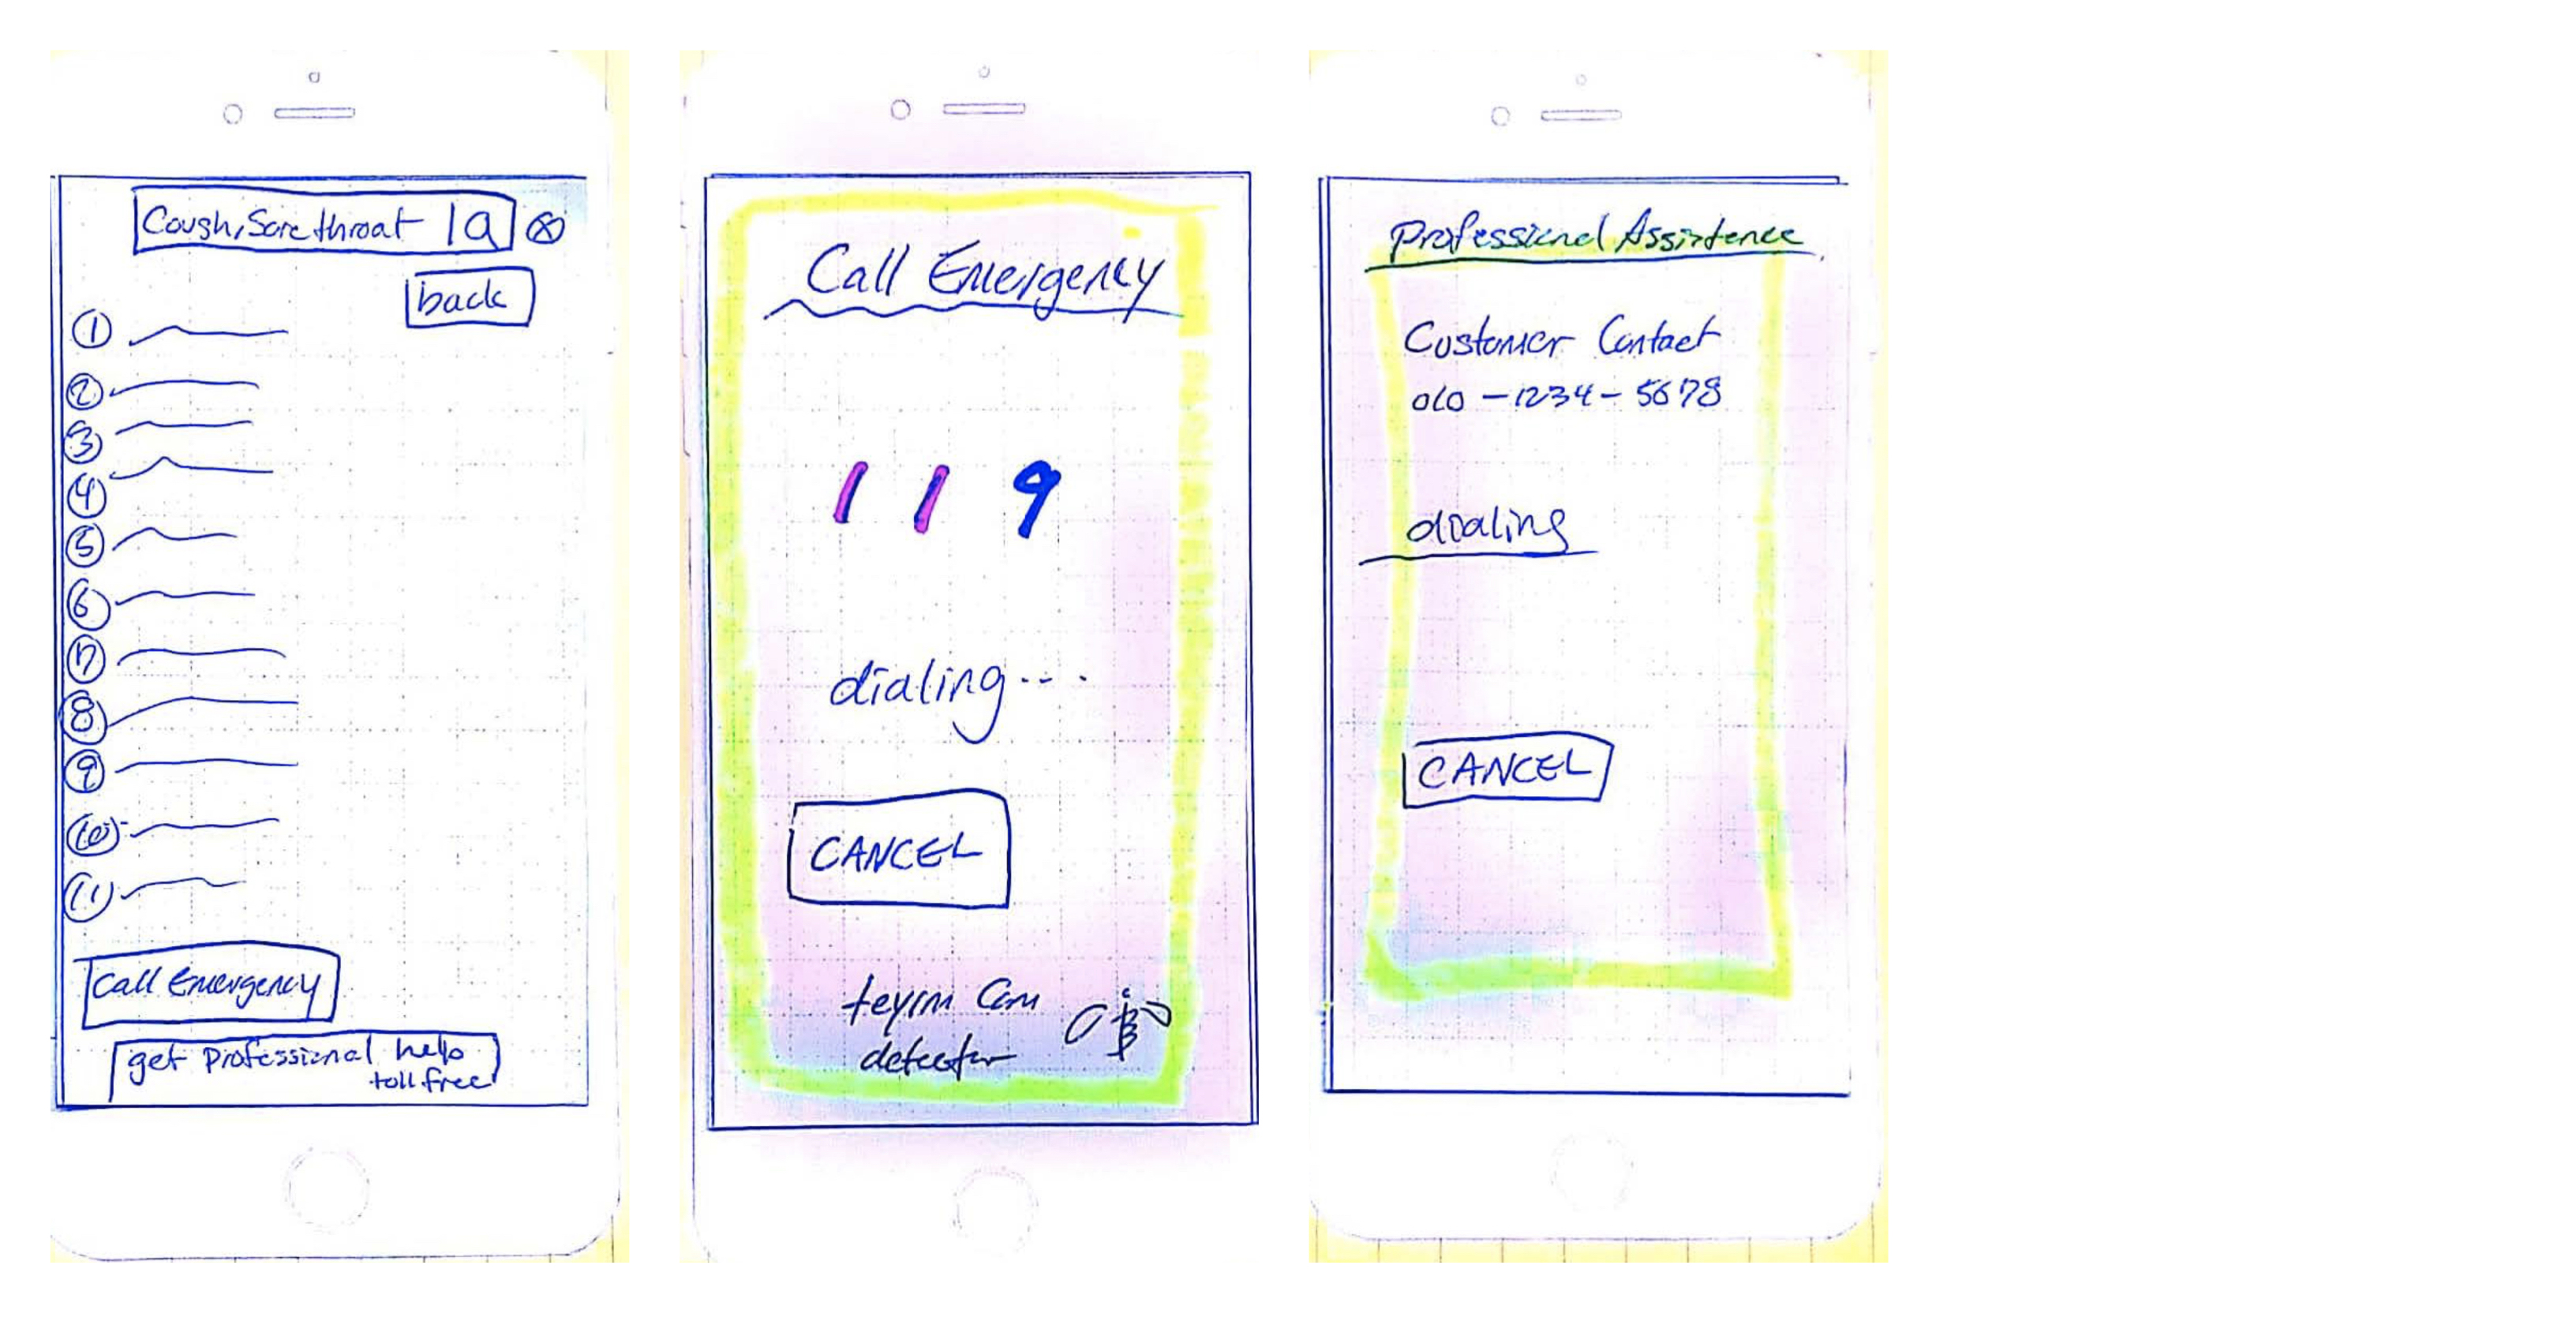 Cough, Sore throat
back
1
2
3
4
5
6
7
8
9
10
11
Call Emergency
get Professional help
toll free
Call Emergency
1 1 9
dialing...
CANCEL
detector
Professional Assistence
Customer Contact
010-1234-5678
dialing
CANCEL